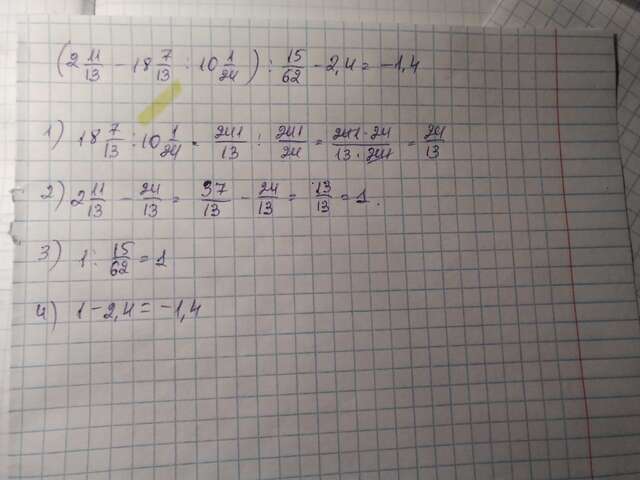 (2 11/13 - 18 7/13 : 10 1/24) : 15/62 - 2,4 = -1,4
1) 18 7/13 : 10 1/24 = 241/13 : 241/24 = 241·24/13·241 = 24/13
2) 2 11/13 - 24/13 = 37/13 - 24/13 = 13/13 = 1.
3) 1 : 15/62 = 1
4) 1 - 2,4 = -1,4